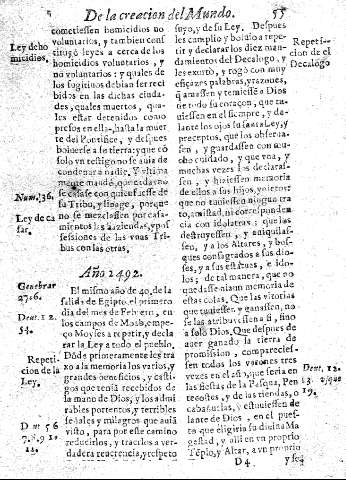 De la creacion del Mundo. 55
Ley de ho
micidios.
cometiessen homicidios no
voluntarios, y tambien const
tituyò leyes a cerca de los
homicidios voluntarios, y
no voluntarios: y quales de
los fugitivos debian ser reci
bidos en las dichas ciuda
des, quales muertos, qua-
les estar detenidos como
presos en ella, hasta la muer
te del Pontifice, y despues
boluerse a su tierra: y que cõ
solo vn testigo no se auia de
condenar a nadie. Y vltima
mente mandò, que cada vno
se casase con
su Tribu, y linage, porque
no se mezclassen por casa-
mientos las haziendas, y pos
sessiones de las vnas Tri-
bus con las otras.
Num. 36.
Ley de ca
sar.
Año 2492.
Genebrar
2706.
Deut. 1 2.
Repeti-
cion de la
Ley.
El mismo año de 40, de la
salida de Egipto, el primero
dia del mes de Febrero, en
los campos de Moab, empe-
ço Moyses a repetir, y decla
rar la Ley a todo el pueblo.
Dõde primeramente les tra
xo a la memoria los varios, y
grandes beneficios, y casti-
gos que tenia recebidos de
la mano de Dios; y los admi
rables portentos, y terribles
señales y milagros que auia
visto, para por este camino
reducirlos, y traerlos a ver-
dadera reuerencia, y respeto
suyo, y de su Ley. Despues
les cumplio y boluio a repe-
tir y declarar los diez man-
damientos del Decalogo, y
les exortò, y rogò con muy
eficazes palabras, y razones,
q amassen y temiessẽ a Dios
de todo su coraçon, que tu-
uiessen en el siempre, y de-
lante los ojos su santa Ley, y
preceptos, que los obserua-
sen, y guardassen con mu-
cho cuidado, y que vna, y
muchas vezes los declaras-
sen, y hiziessen memoria
de ellos a sus hijos,
que no tuuiessen ningun tra
to, amistad, ni correspondẽn
cia con idolatras; que las
destruyessen, y aniquilas-
sen, y a los Altares, y bos-
ques consagrados a sus dio-
ses, y a sus estatuas, e ido-
los; de tal manera, que no
quedasse ningun memoria de
estas cosas. Que las vitorias
que tuuiessen y ganassen, no
se las atribuyessen a si, sino
a solo Dios. Que despues de
auer ganado la tierra de
promission, compareciesse-
sen todos los varones tres
vezes en el año, que seria en
las fiestas de la Pasqua, Pen
tecostes, y de las tiendas, o
cabañuelas, y estuuiessen de
lante de Dios, en el pues-
to que eligiria su divina Ma
gestad, y alli en vn proprio
Tẽplo, y Altar, a vn proprio
Repeti-
cion de el
Decalogo
Deut. 12.
D 4